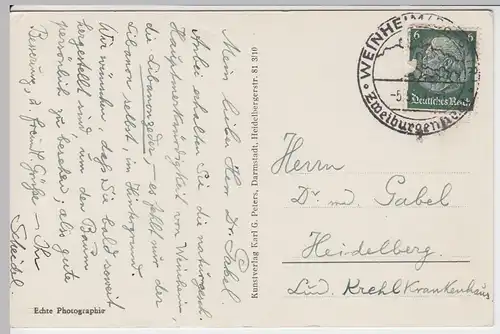 Mein lieber Herr Dr. Gabel
Anbei erhalten Sie die naturgesch.
Hauptmerkwürdigkeit von Weinheim,
die Libanonzeder, – es fehlt nur der
Libanon selbst, im Hintergrund.
Wir wünschen, daß Sie bald soweit
hergestellt sind, um den Baum
persönlich zu besehen; also gute
Besserung, u. freundl. Grüße – Ihr
Scheidel.
Echte Photographie
Kunstverlag Karl G. Peters, Darmstadt, Heidelbergerstr. 81 3/10
WEINHEIM
Zweiburgen
-5.
6 6
Deutsches Reich
Herrn
Dr. med. Gabel
Heidelberg.
Lud. Krehl Krankenhaus.